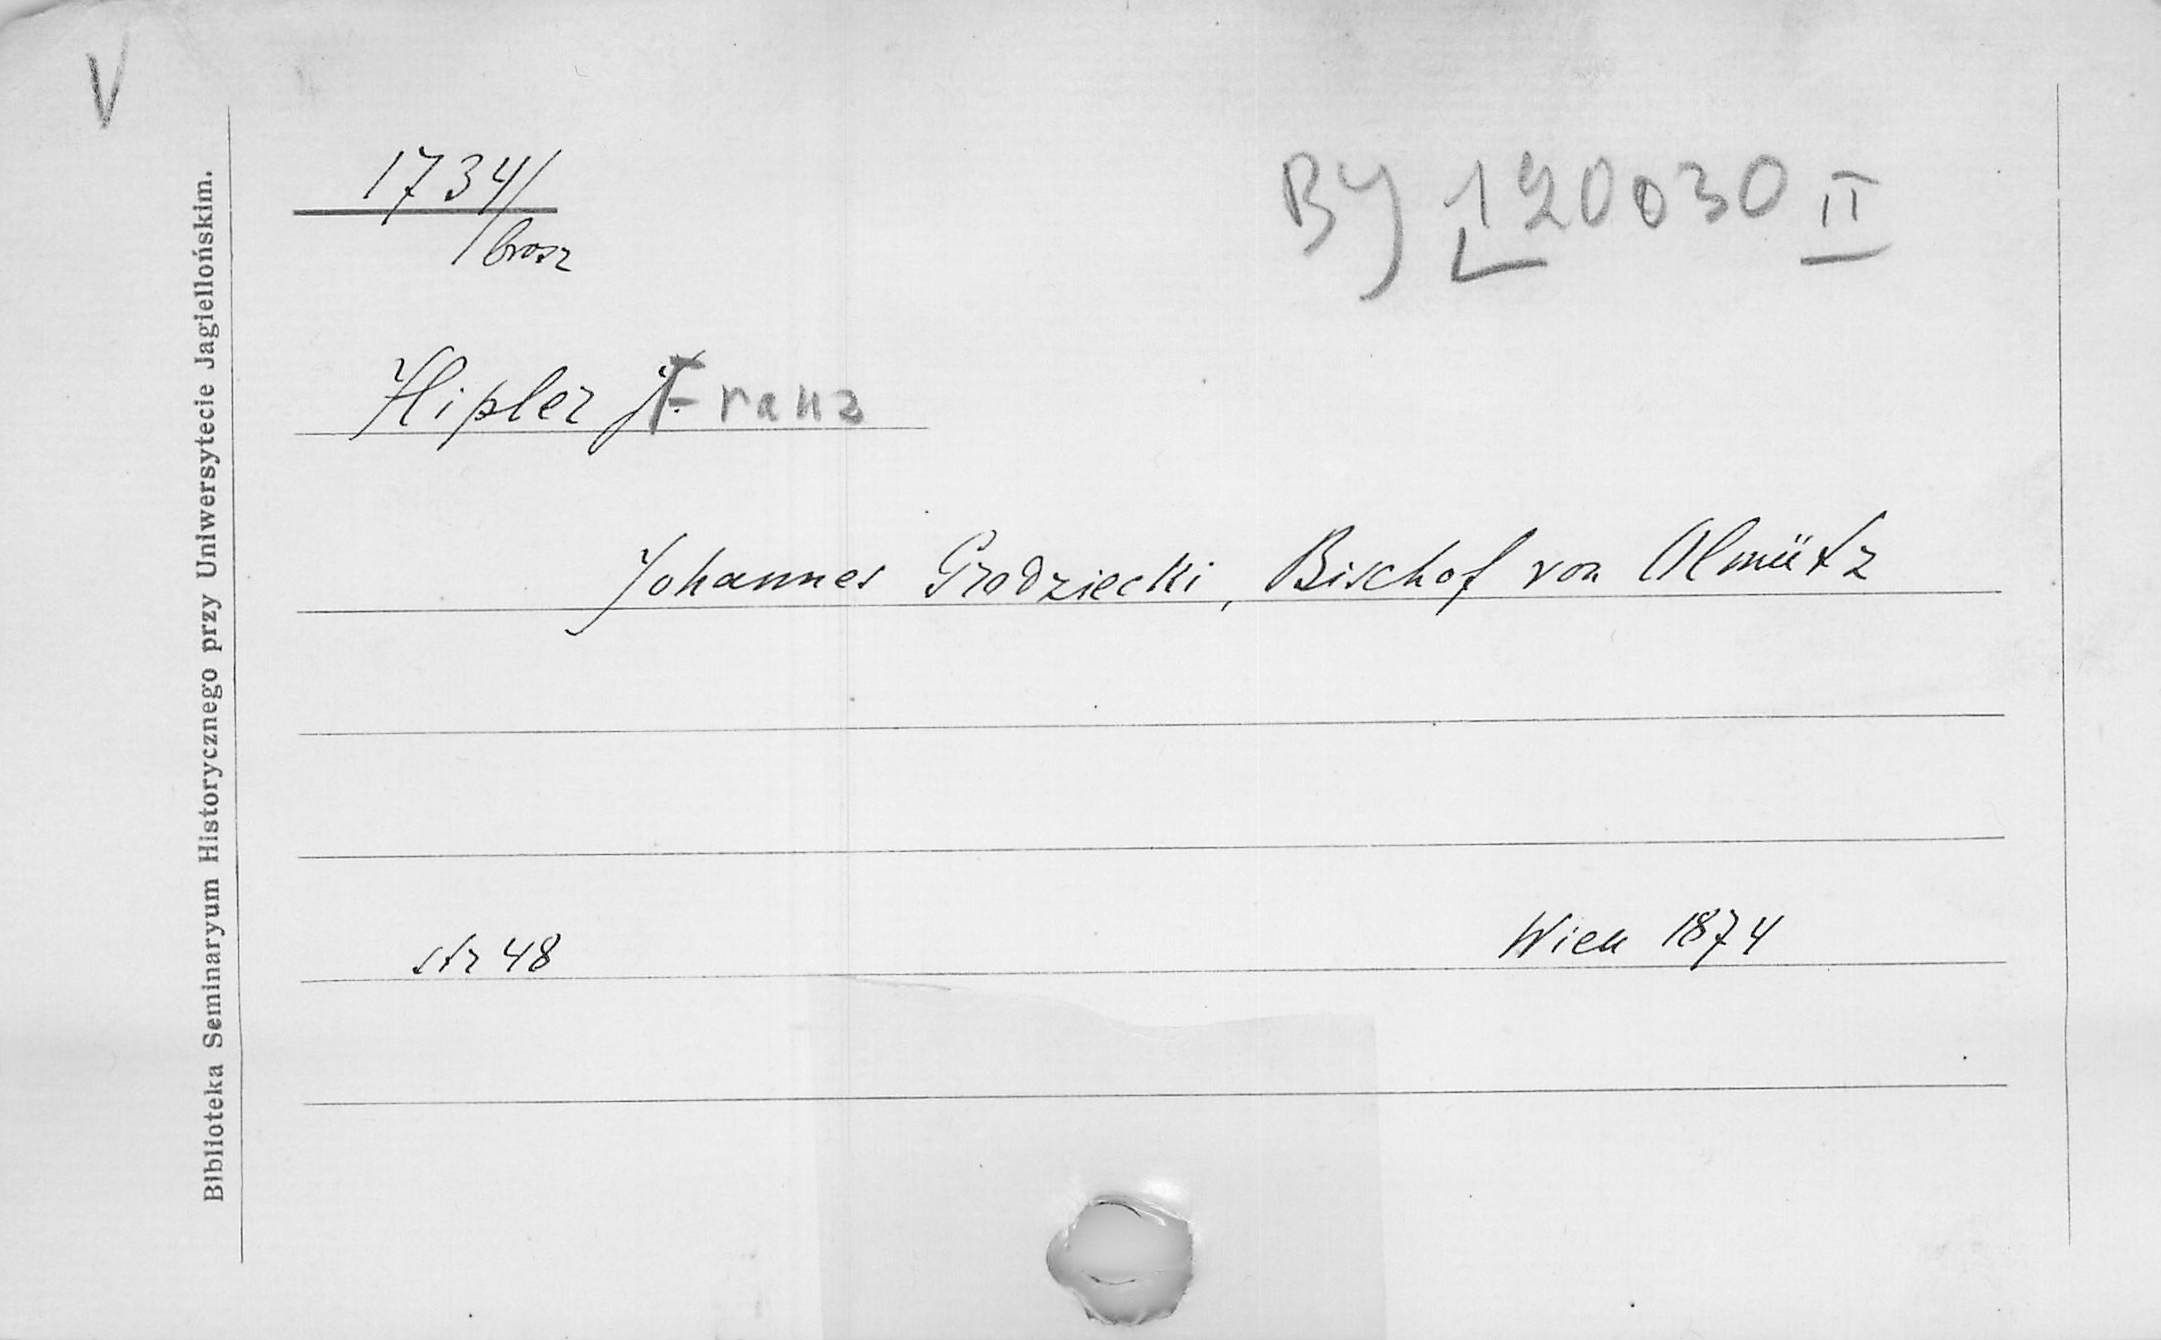 V
1734/brosz
BJ 120030 II
Hipler Franz
Johannes Grodziecki, Bischof von Olmütz
str 48
Wien 1874
Biblioteka Seminaryum Historycznego przy Uniwersytecie Jagiellońskim.